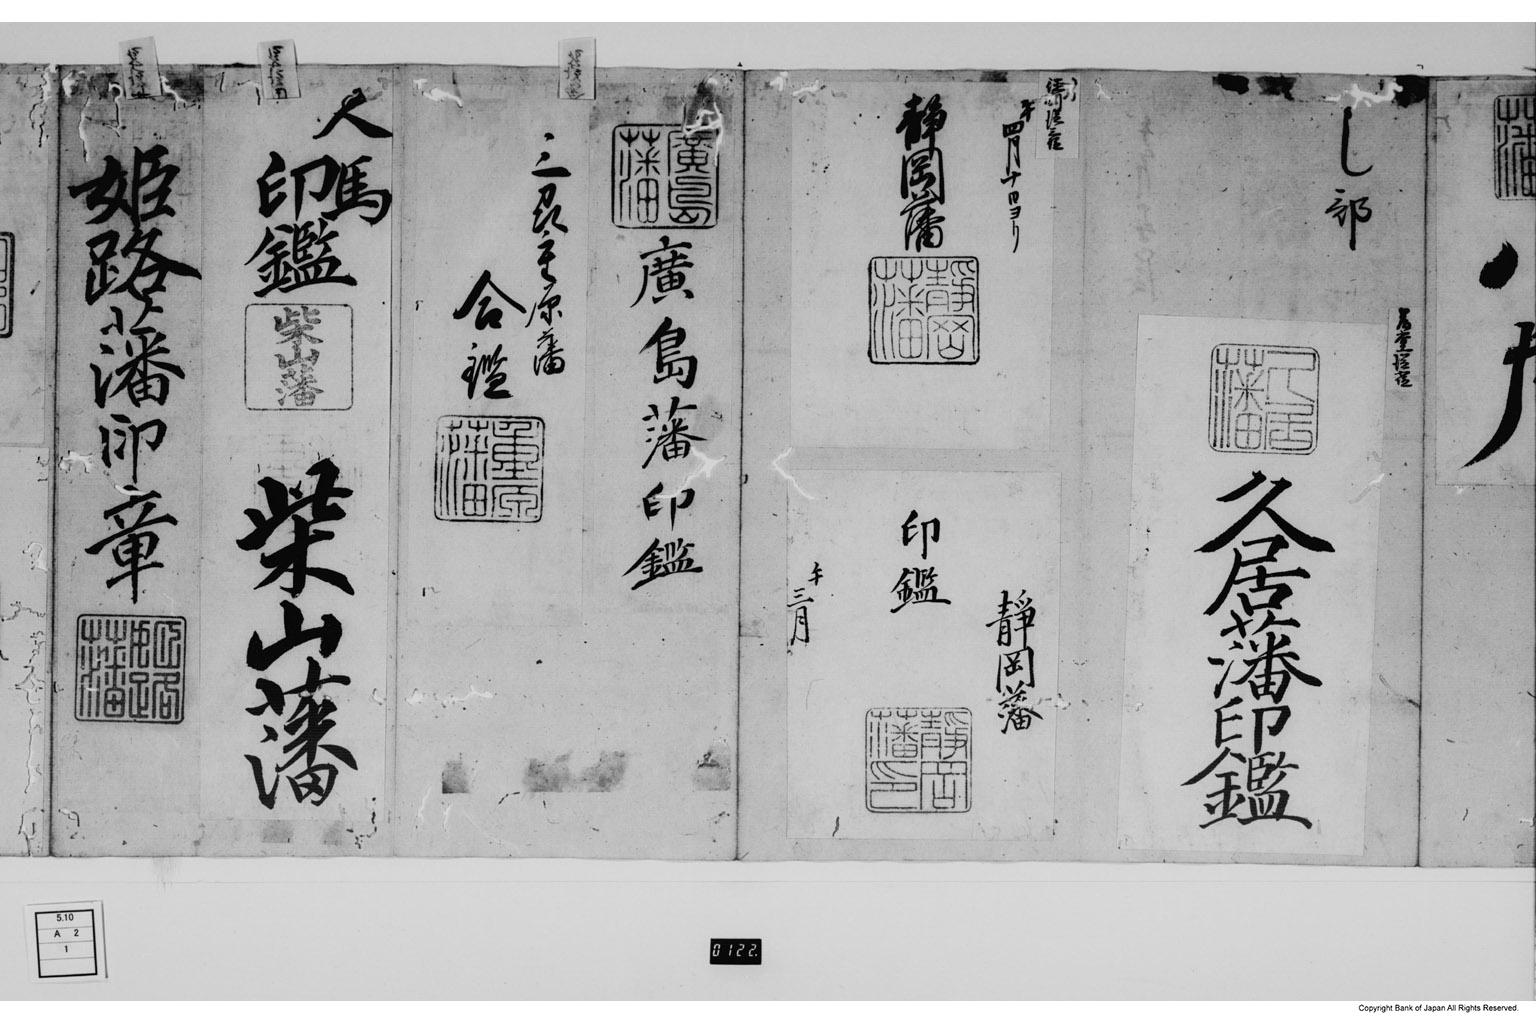 し部
久居藩
久居藩印鑑
午四月十日ヨリ
静岡藩
静岡藩
静岡藩
印鑑
午三月
静岡藩印
廣島藩
廣島藩印鑑
重原藩
合鑑
重原藩
人馬
印鑑
柴山藩
柴山藩
姫路藩印章
姫路藩
5.10
A 2
1
0122.
Copyright Bank of Japan All Rights Reserved.